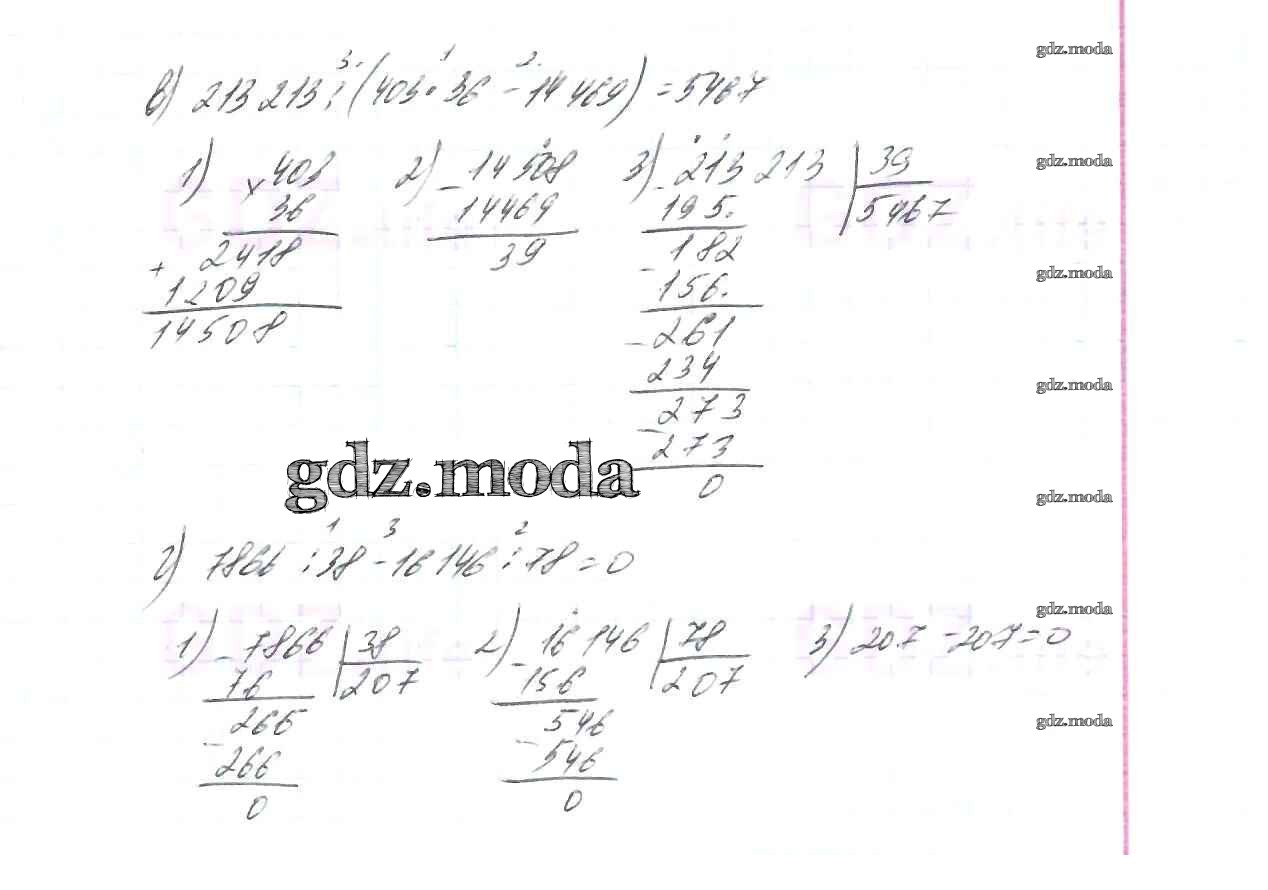 в) 213 213 : (403 · 36 - 14 469) = 5467
3. 1 2.
1) × 403
36
+ 2418
1209
14508
2) - 14 508
14469
39
3) - 213 213 | 39
195. 5467
- 182
156.
- 261
234
- 273
273
0
gdz.moda
г) 7866 : 38 - 16 146 : 78 = 0
1 3 2
1) - 7866 | 38
76 207
- 266
266
0
2) - 16 146 | 78
156 207
- 546
546
0
3) 207 - 207 = 0
gdz.moda
gdz.moda
gdz.moda
gdz.moda
gdz.moda
gdz.moda
gdz.moda